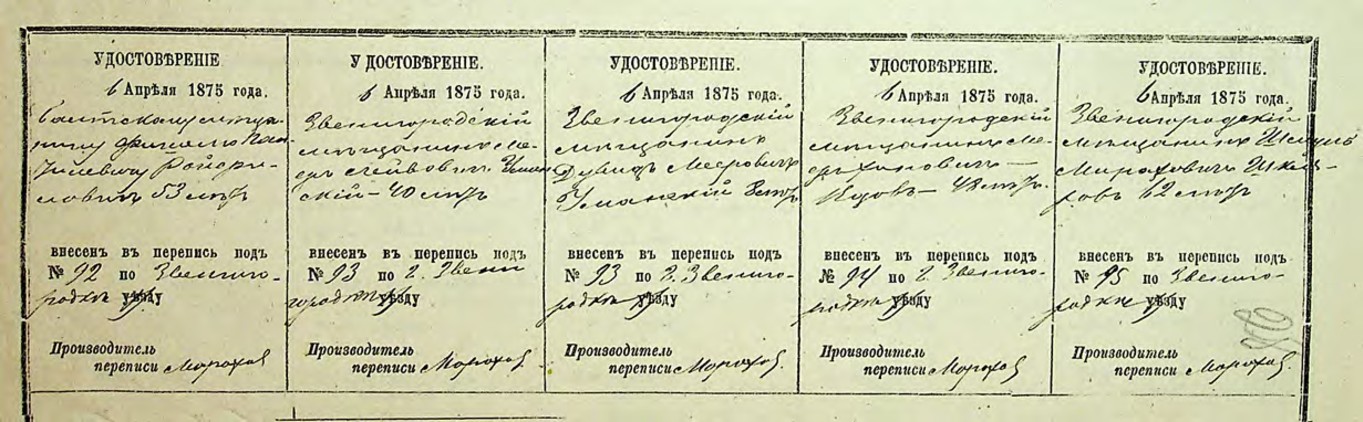 УДОСТОВѢРЕНІЕ
6 Апрѣля 1875 года.
53 лѣтъ
внесенъ въ перепись подъ
№ 92 по Звениго-
родкѣ уѣзду
Производитель
переписи Морохов
УДОСТОВѢРЕНІЕ.
6 Апрѣля 1875 года.
Звенигородскій
мѣщанинъ Ме-
еръ Лейбовичъ Уман
скій – 40 лѣтъ
внесенъ въ перепись подъ
№ 93 по г. Звени
городкѣ уѣзду
Производитель
переписи Морохов.
УДОСТОВѢРЕНІЕ.
6 Апрѣля 1875 года.
Звенигородскій
мѣщанинъ
Дувидъ Меерович
Уманскій 8 лѣтъ
внесенъ въ перепись подъ
№ 93 по г. Звениго-
родкѣ уѣзду
Производитель
переписи Морохов.
УДОСТОВѢРЕНІЕ.
6 Апрѣля 1875 года.
Звенигородскій
мѣщанинъ Ме-
еръ Хаимовичъ —
– 48 лѣтъ.
внесенъ въ перепись подъ
№ 94 по г. Звениго-
родкѣ уѣзду
Производитель
переписи Морохов
УДОСТОВѢРЕНІЕ.
6 Апрѣля 1875 года.
Звенигородскій
мѣщанинъ
62 лѣтъ
внесенъ въ перепись подъ
№ 95 по Звениго-
родкѣ уѣзду
Производитель
переписи Морохов.